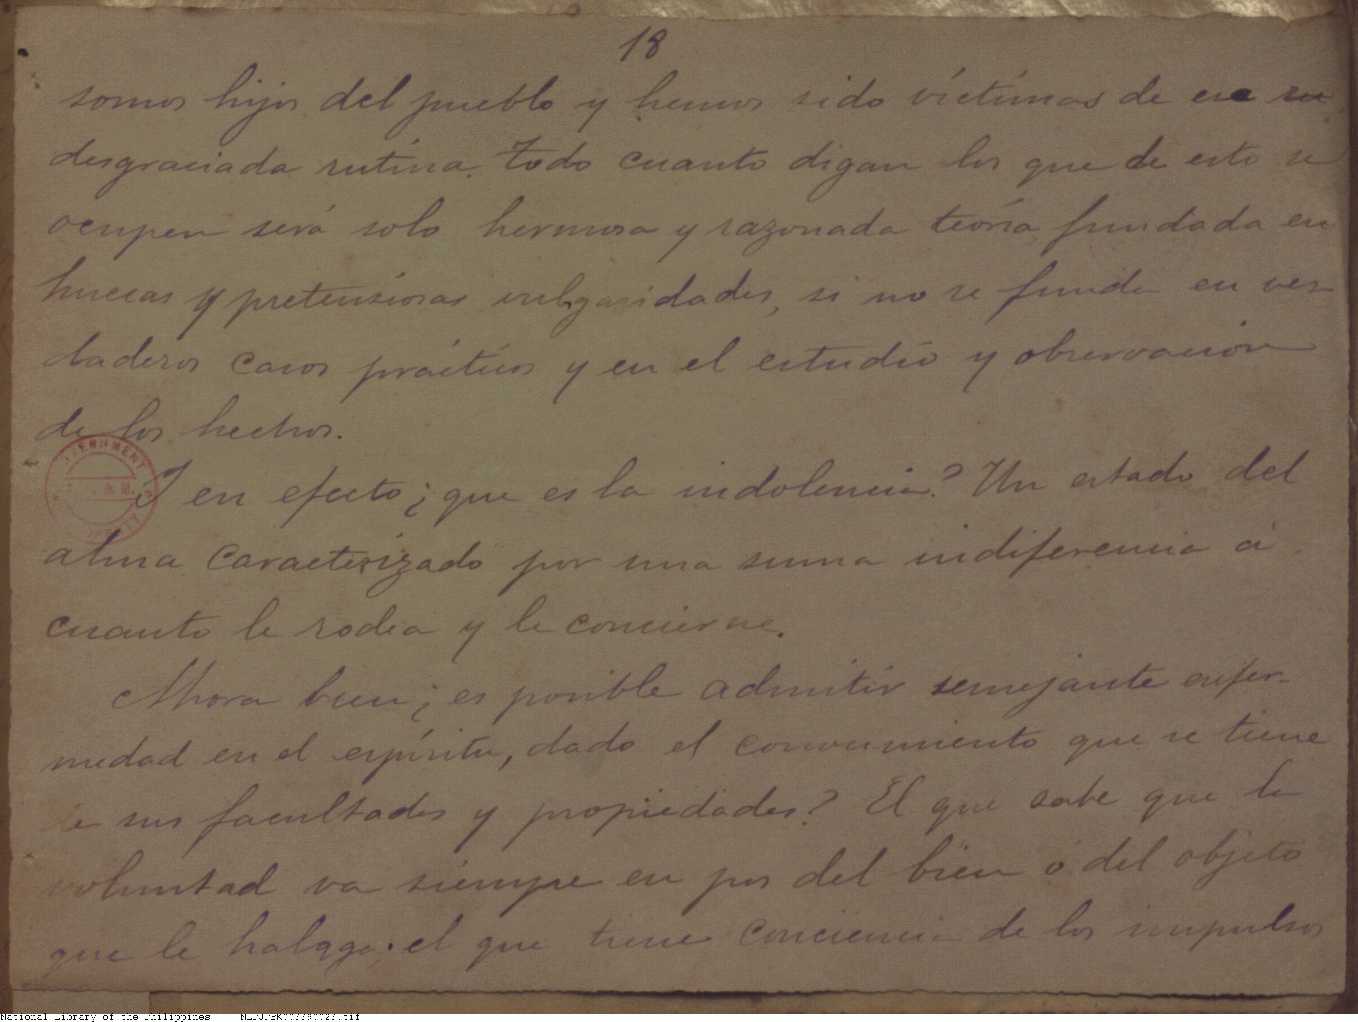 18
somos hijos del pueblo y hemos sido víctimas de esa su
desgraciada rutina. Todo cuanto digan los que de esto se
ocupen será solo hermosa y razonada teoría fundada en
huecas y pretensiosas vulgaridades, si no se funda en ver-
daderos casos prácticos y en el estudio y observacion
de los hechos.
Y en efecto ¿que es la indolencia? Un estado del
alma caracterizado por una suma indiferencia á
cuanto le rodea y le concierne.
Ahora bien ¿es posible admitir semejante enfer-
medad en el espíritu, dado el conocimiento que se tiene
de sus facultades y propiedades? El que sabe que la
voluntad va siempre en pos del bien ó del objeto
que le halaga: el que tiene conciencia de los impulsos
National Library of the Philippines